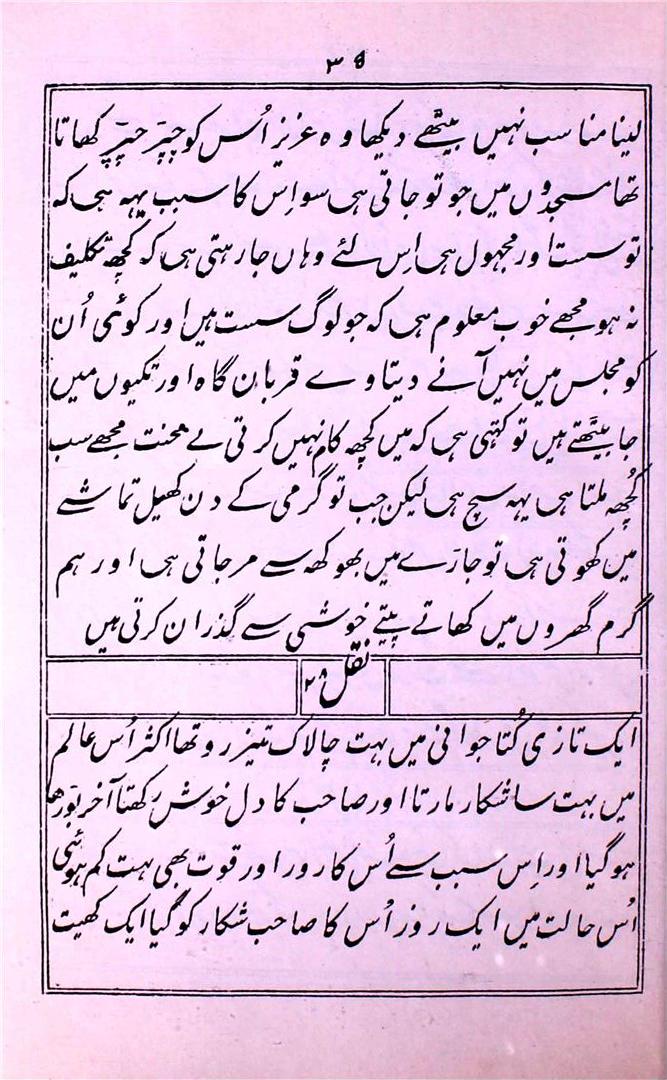 ۳۵
لینا مناسب نہیں بیٹھے دیکھا وہ عزیز اُس کو چپڑ چپڑ کھاتا
تھا مسجدوں میں جو تو جاتی ہی سو اِس کا سبب یہہ ہی کہ
تو سست اور مجہول ہی اِس لئے وہاں جا رہتی ہی کہ کچھ تکلیف
نہ ہو مجھے خوب معلوم ہی کہ جو لوگ سست ہیں اور کوئی اُن
کو مجلس میں نہیں آنے دیتا وے قربان گاہ اور تکیوں میں
جا بیٹھتے ہیں تو کہتی ہی کہ میں کچھ کام نہیں کرتی بے محنت مجھے سب
کُچھ ملتا ہی یہہ سچ ہی لیکن جب تو گرمی کے دن کھیل تماشے
میں کھوتی ہی تو جاڑے میں بھوکھ سے مر جاتی ہی اور ہم
گرم گھروں میں کھاتے پیتے خوشی سے گذران کرتی ہیں
نقل ۲۸
ایک تازی کُتا جوانی میں بہت چالاک تیز رو تھا اکثر اُس عالم
میں بہت سا شکار مارتا اور صاحب کا دل خوش رکھتا آخر بوڑھا
ہو گیا اور اِس سبب سے اُس کا زور اور قوت بھی بہت کم ہوئی
اُس حالت میں ایک روز اُس کا صاحب شکار کو گیا ایک کھیت